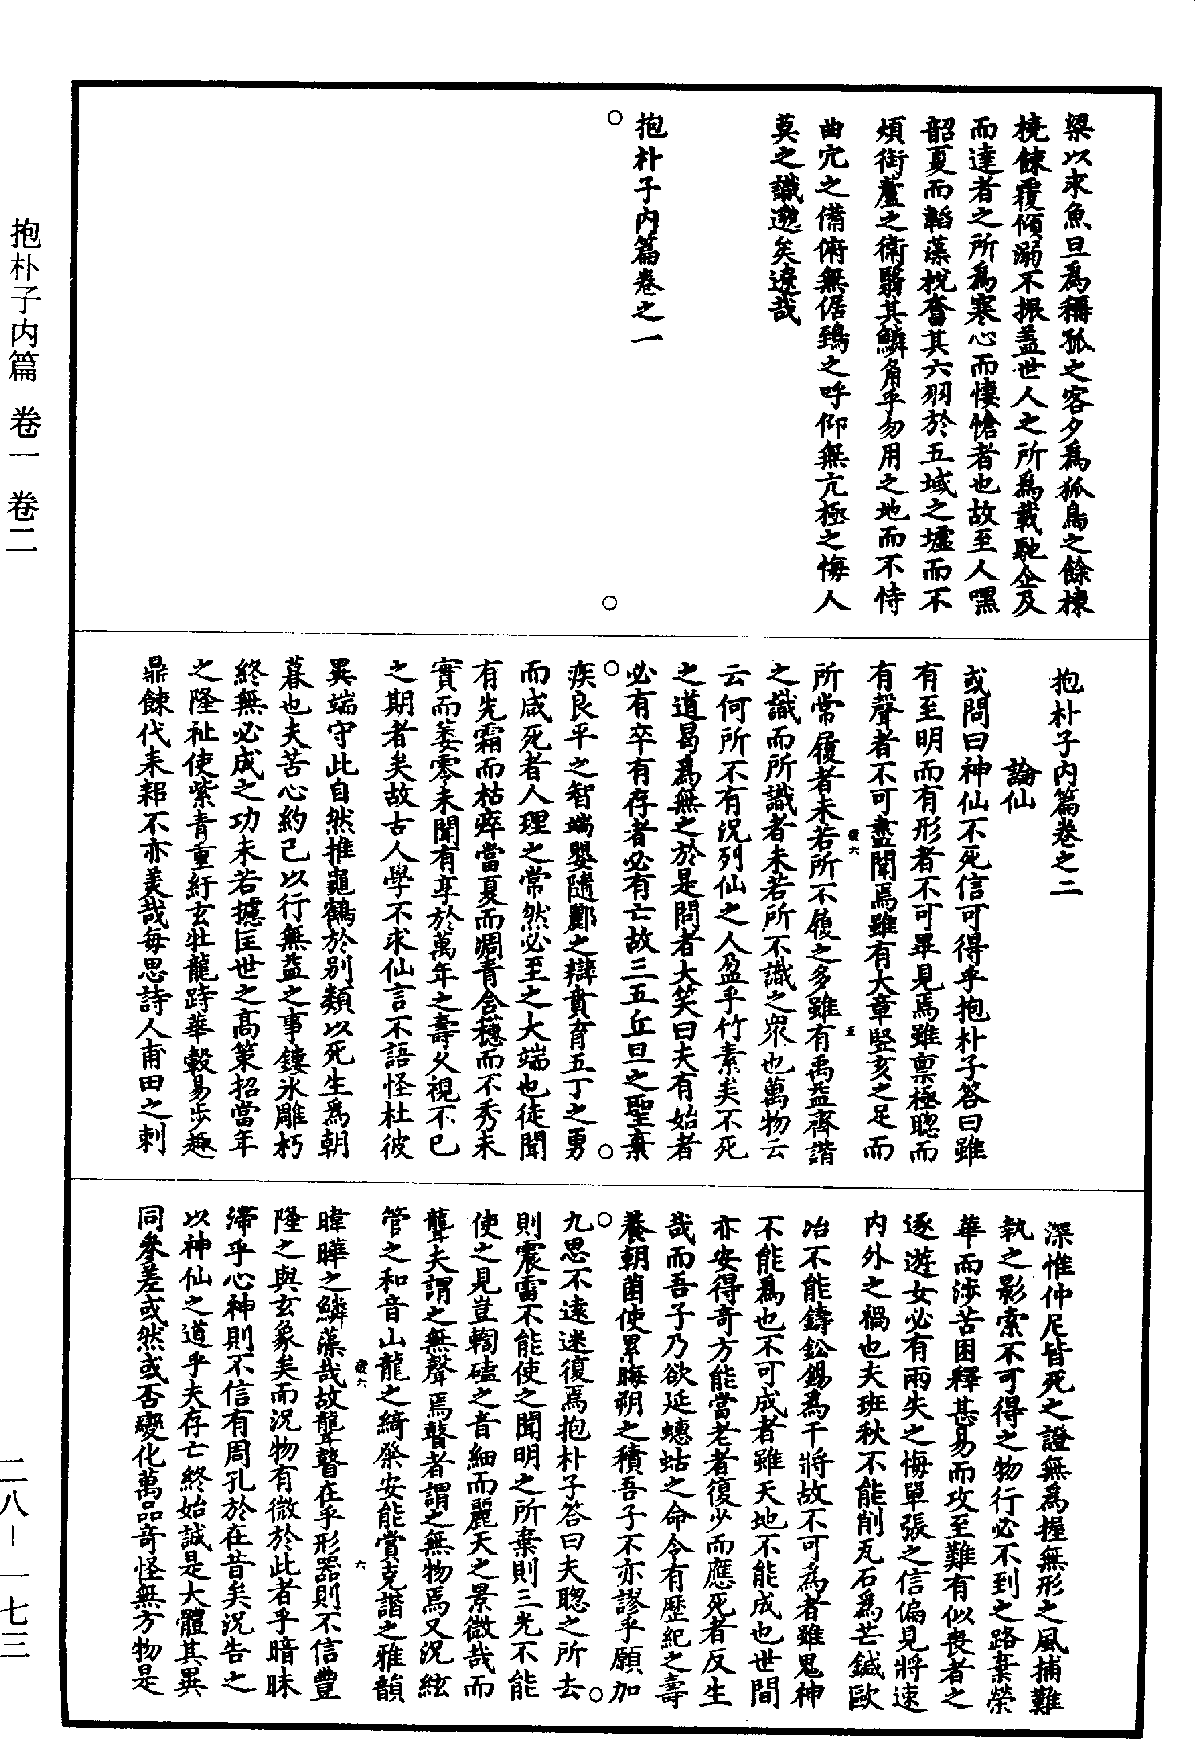 梁以求魚旦爲稱孤之客夕爲狐鳥之餘棟
撓餗覆傾溺不振蓋世人之所爲載馳企及
而達者之所爲寒心而悽愴者也故至人嘿
韶夏而韜藻梲奮其六羽於五城之墟而不
煩銜蘆之衛翳其鱗角乎勿用之地而不恃
曲穴之備俯無倨鵄之呼仰無亢極之悔人
莫之識邈矣遼哉
抱朴子內篇卷之一
抱朴子內篇卷之二
論仙
或問曰神仙不死信可得乎抱朴子答曰雖
有至明而有形者不可畢見焉雖禀極聰而
有聲者不可盡聞焉雖有大章竪亥之足而
所常履者未若所不履之多雖有禹益齊諧
之識而所識者未若所不識之衆也萬物云
云何所不有況列仙之人盈乎竹素矣不死
之道曷爲無之於是問者大笑曰夫有始者
必有卒有存者必有亡故三五丘旦之聖棄
疾良平之智端嬰隨酈之辯賁育五丁之勇
而咸死者人理之常然必至之大端也徒聞
有先霜而枯瘁當夏而凋青含穗而不秀未
實而萎零未聞有享於萬年之壽久視不已
之期者矣故古人學不求仙言不語怪杜彼
異端守此自然推龜鶴於別類以死生爲朝
暮也夫苦心約己以行無益之事鏤氷雕朽
終無必成之功未若攄匡世之高策招當年
之隆祉使紫青重紆玄牡龍跱華轂易步趣
鼎餗代耒耜不亦美哉每思詩人甫田之刺
深惟仲尼皆死之證無爲握無形之風捕難
執之影索不可得之物行必不到之路棄榮
華而涉苦困釋甚易而攻至難有似喪者之
逐遊女必有兩失之悔單張之信偏見將速
內外之禍也夫班秋不能削瓦石爲芒鍼歐
冶不能鑄鈆錫爲干將故不可爲者雖鬼神
不能爲也不可成者雖天地不能成也世間
亦安得奇方能當老者復少而應死者反生
哉而吾子乃欲延蟪蛄之命令有歷紀之壽
養朝菌使累晦朔之積吾子不亦謬乎願加
九思不遠迷復焉抱朴子答曰夫聰之所去
則震雷不能使之聞明之所棄則三光不能
使之見豈輷磕之音細而麗天之景微哉而
聾夫謂之無聲焉瞽者謂之無物焉又況絃
管之和音山龍之綺粲安能賞克諧之雅韻
暐曄之鱗藻哉故聾瞽在乎形器則不信豐
隆之與玄象矣而況物有微於此者乎暗昧
滯乎心神則不信有周孔於在昔矣況告之
以神仙之道乎夫存亡終始誠是大體其異
同參差或然或否變化萬品奇怪無方物是
抱朴子內篇 卷一 卷二
二八－一七三